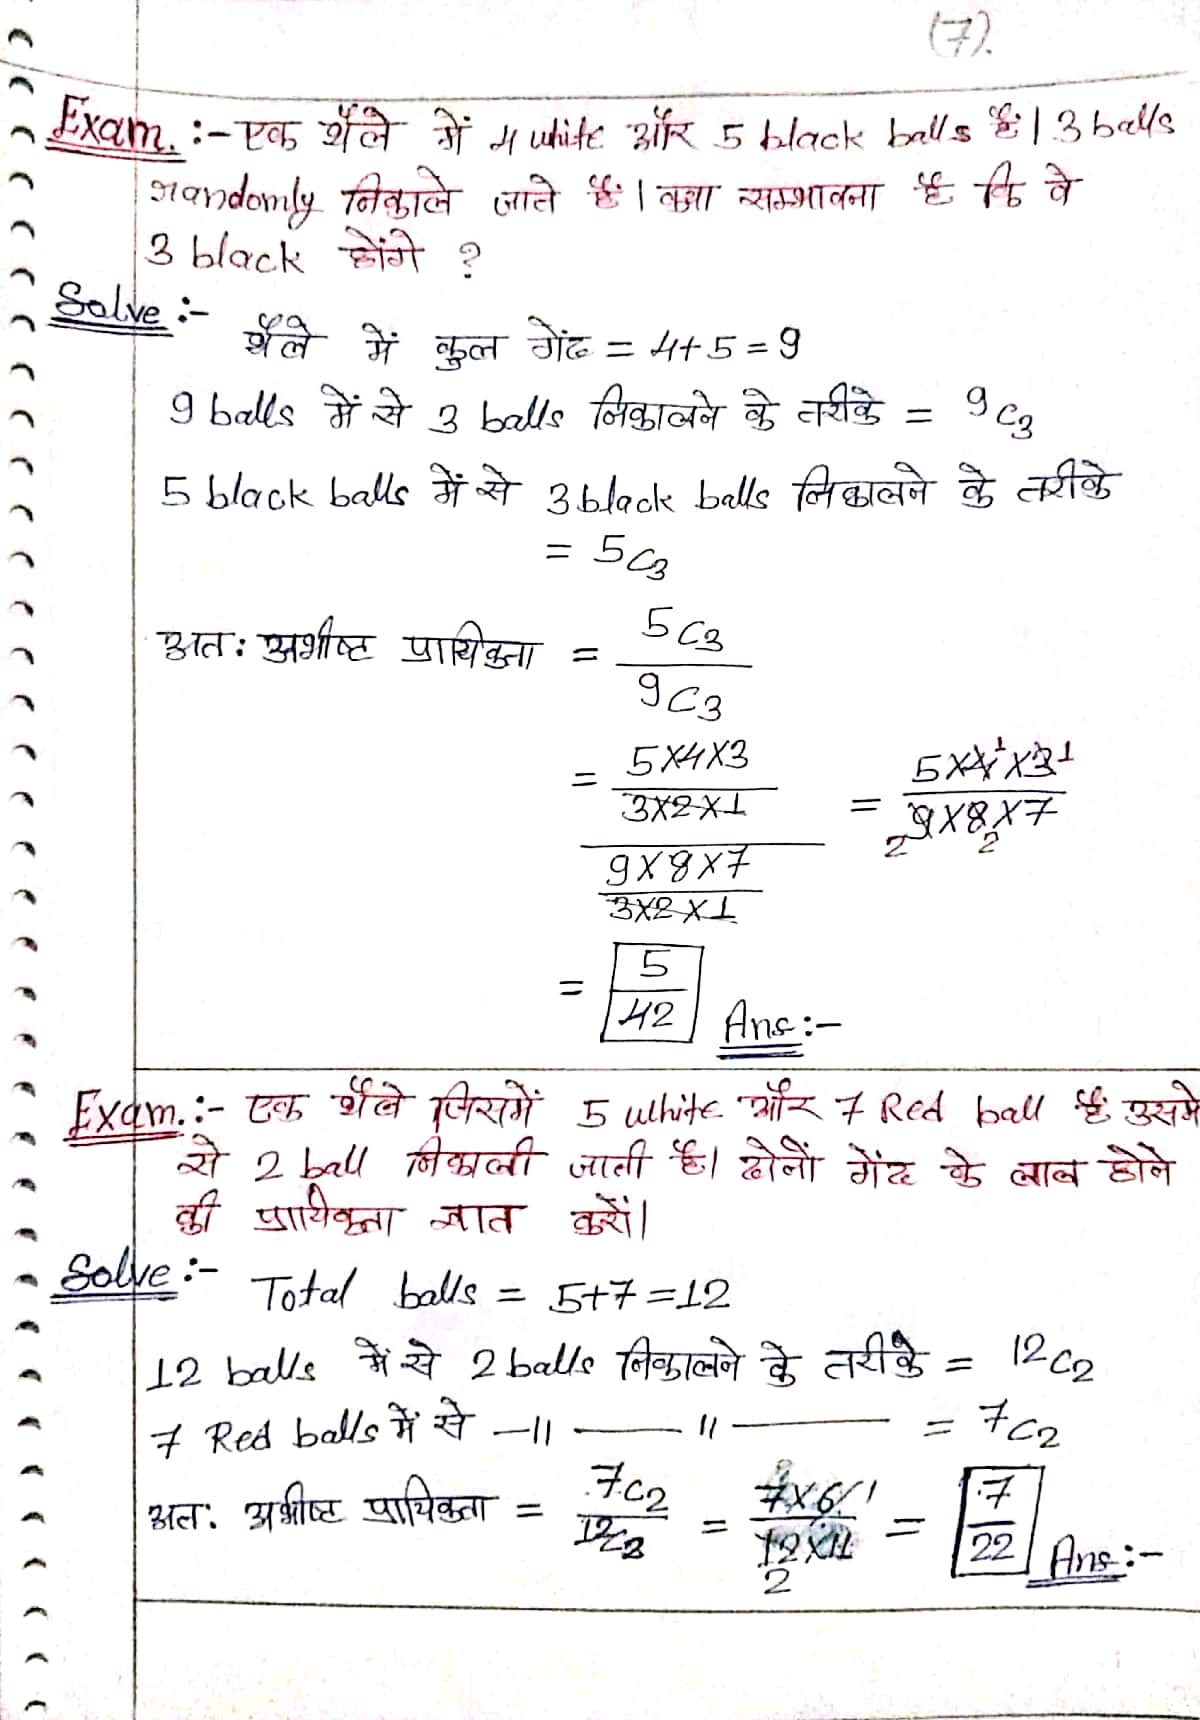 (7).
Exam. :- एक थैले में 4 white और 5 black balls हैं। 3 balls
randomly निकाले जाते हैं। क्या सम्भावना है कि वे
3 black होंगे ?
Solve :-
थैले में कुल गेंद = 4+5 = 9
9 balls में से 3 balls निकालने के तरीके = 9C3
5 black balls में से 3 black balls निकालने के तरीके
= 5C3
अतः अभीष्ट प्रायिकता = 5C3 / 9C3
= (5×4×3 / 3×2×1) / (9×8×7 / 3×2×1) = 5×4×3 / 9×8×7
= 5/42 Ans:-
Exam. :- एक थैले जिसमें 5 white और 7 Red ball हैं उसमे
से 2 ball निकाली जाती है। दोनों गेंद के लाल होने
की प्रायिकता ज्ञात करों।
Solve :- Total balls = 5+7 = 12
12 balls में से 2 balls निकालने के तरीके = 12C2
7 Red balls में से —11 —— 11 —— = 7C2
अतः अभीष्ट प्रायिकता = 7C2 / 12C2 = 7×6 / 12×11 = 7/22 Ans:-